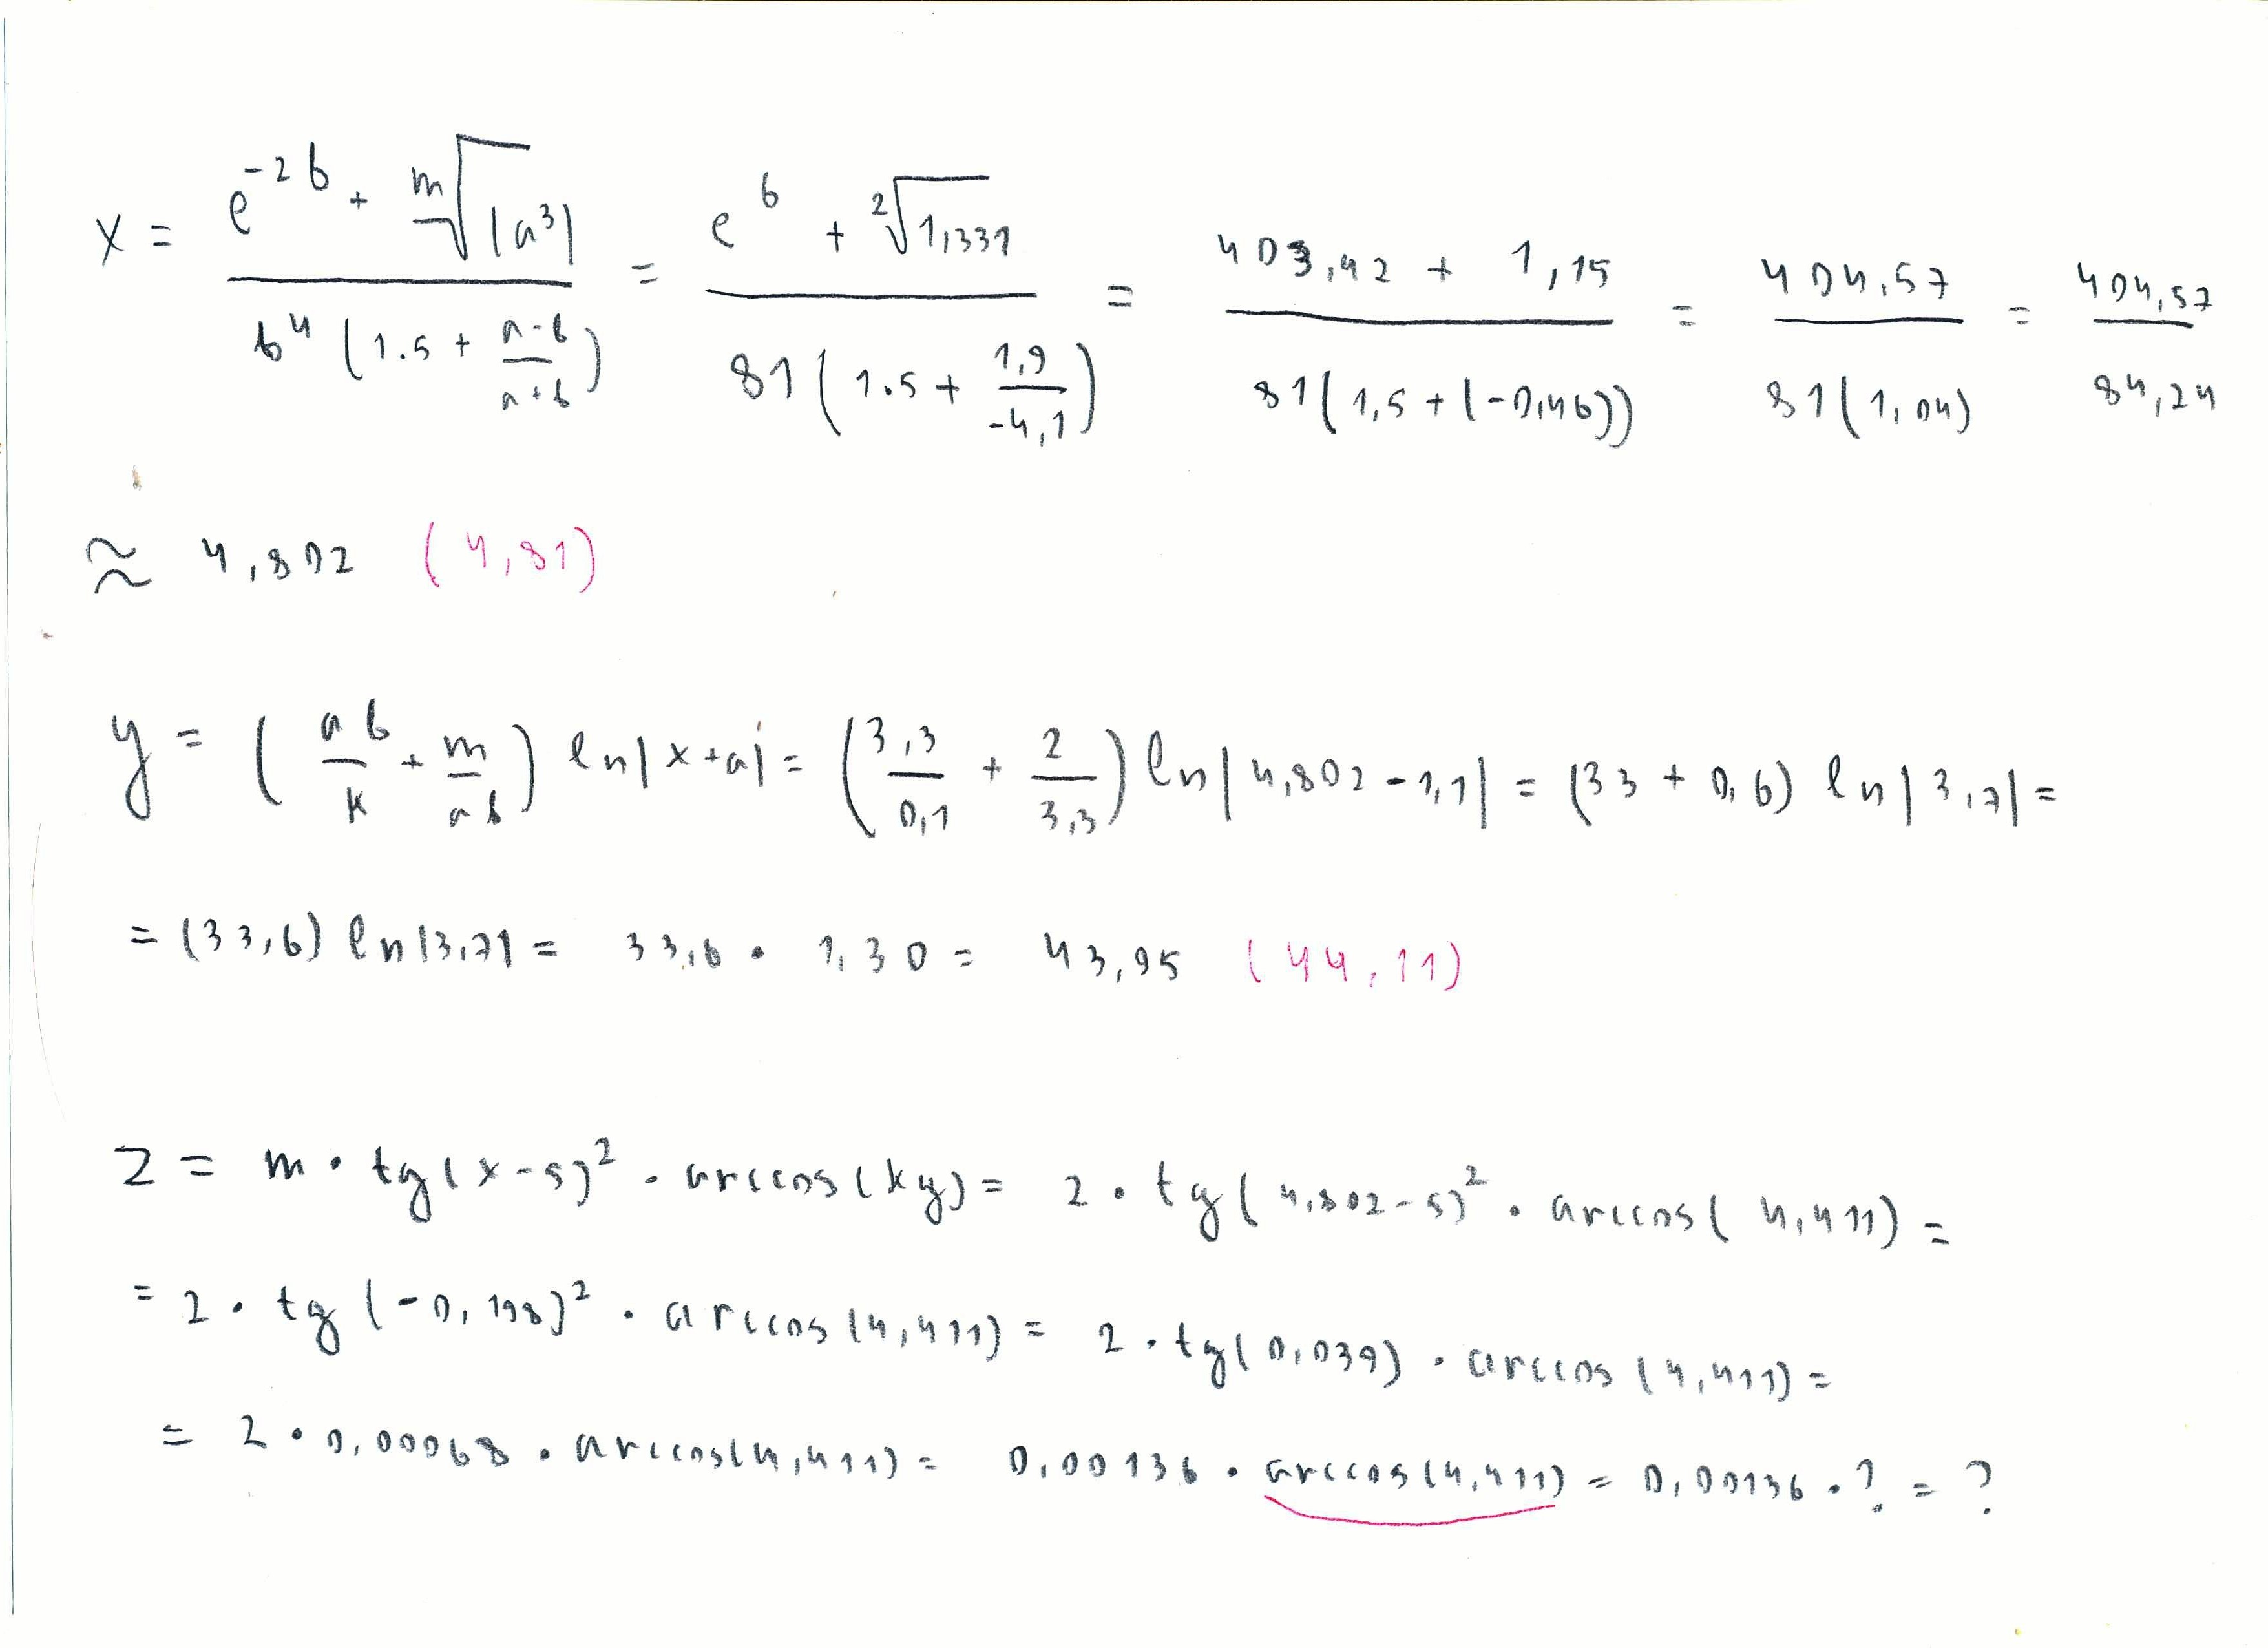 x = (e^{-2b} + \sqrt[m]{|a^3|}) / (b^4 (1.5 + (a-b)/(a+b))) = (e^6 + \sqrt[2]{1,331}) / (81 (1.5 + 1,9/-4,1)) = (403,42 + 1,15) / (81(1,5 + (-0,46))) = 404,57 / 81(1,04) = 404,57 / 84,24
≈ 4,802 (4,81)
y = (ab/k + m/ab) ln|x+a| = (3,3/0,1 + 2/3,3) ln|4,802 - 1,1| = (33 + 0,6) ln|3,7| =
= (33,6) ln|3,7| = 33,6 • 1,30 = 43,95 (44,11)
z = m • tg(x-5)² • arccos(ky) = 2 • tg(4,802-5)² • arccos(4,411) =
= 2 • tg(-0,198)² • arccos(4,411) = 2 • tg(0,039) • arccos(4,411) =
= 2 • 0,00068 • arccos(4,411) = 0,00136 • arccos(4,411) = 0,00136 • ? = ?